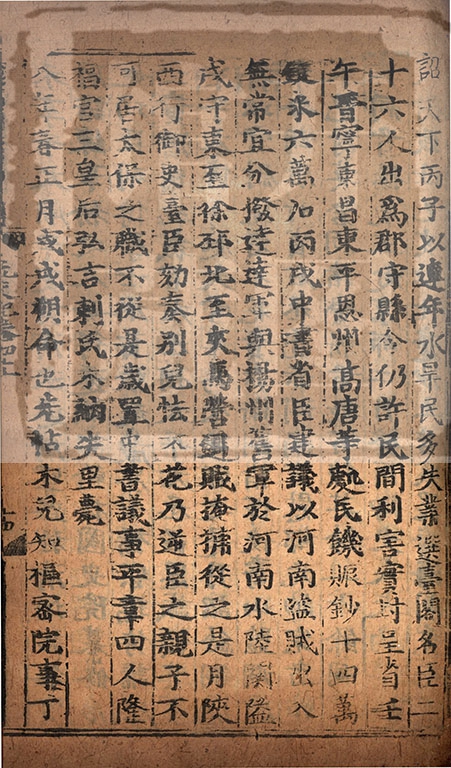 詔天下丙子以連年水旱民多失業選臺閣名臣二
十六人出爲郡守縣令仍許民間利害實封呈省壬
午晋寧東昌東平恩州高唐等處民饑賑鈔十四萬
錠米六萬石丙戌中書省臣建議以河南盜賊出入
無常宜分撥達達軍與揚州舊軍於河南水陸關隘
戍守東至徐邳北至夾馬營遇賊掩捕從之是月陝
西行御史臺臣劾奏別兒怯不花乃逆臣之親子不
可居太保之職不從是歲置中書議事平章四人隆
福宮三皇后弘吉剌氏木納失里薨
八年春正月戊戌朔命也先帖木兒知樞密院事丁